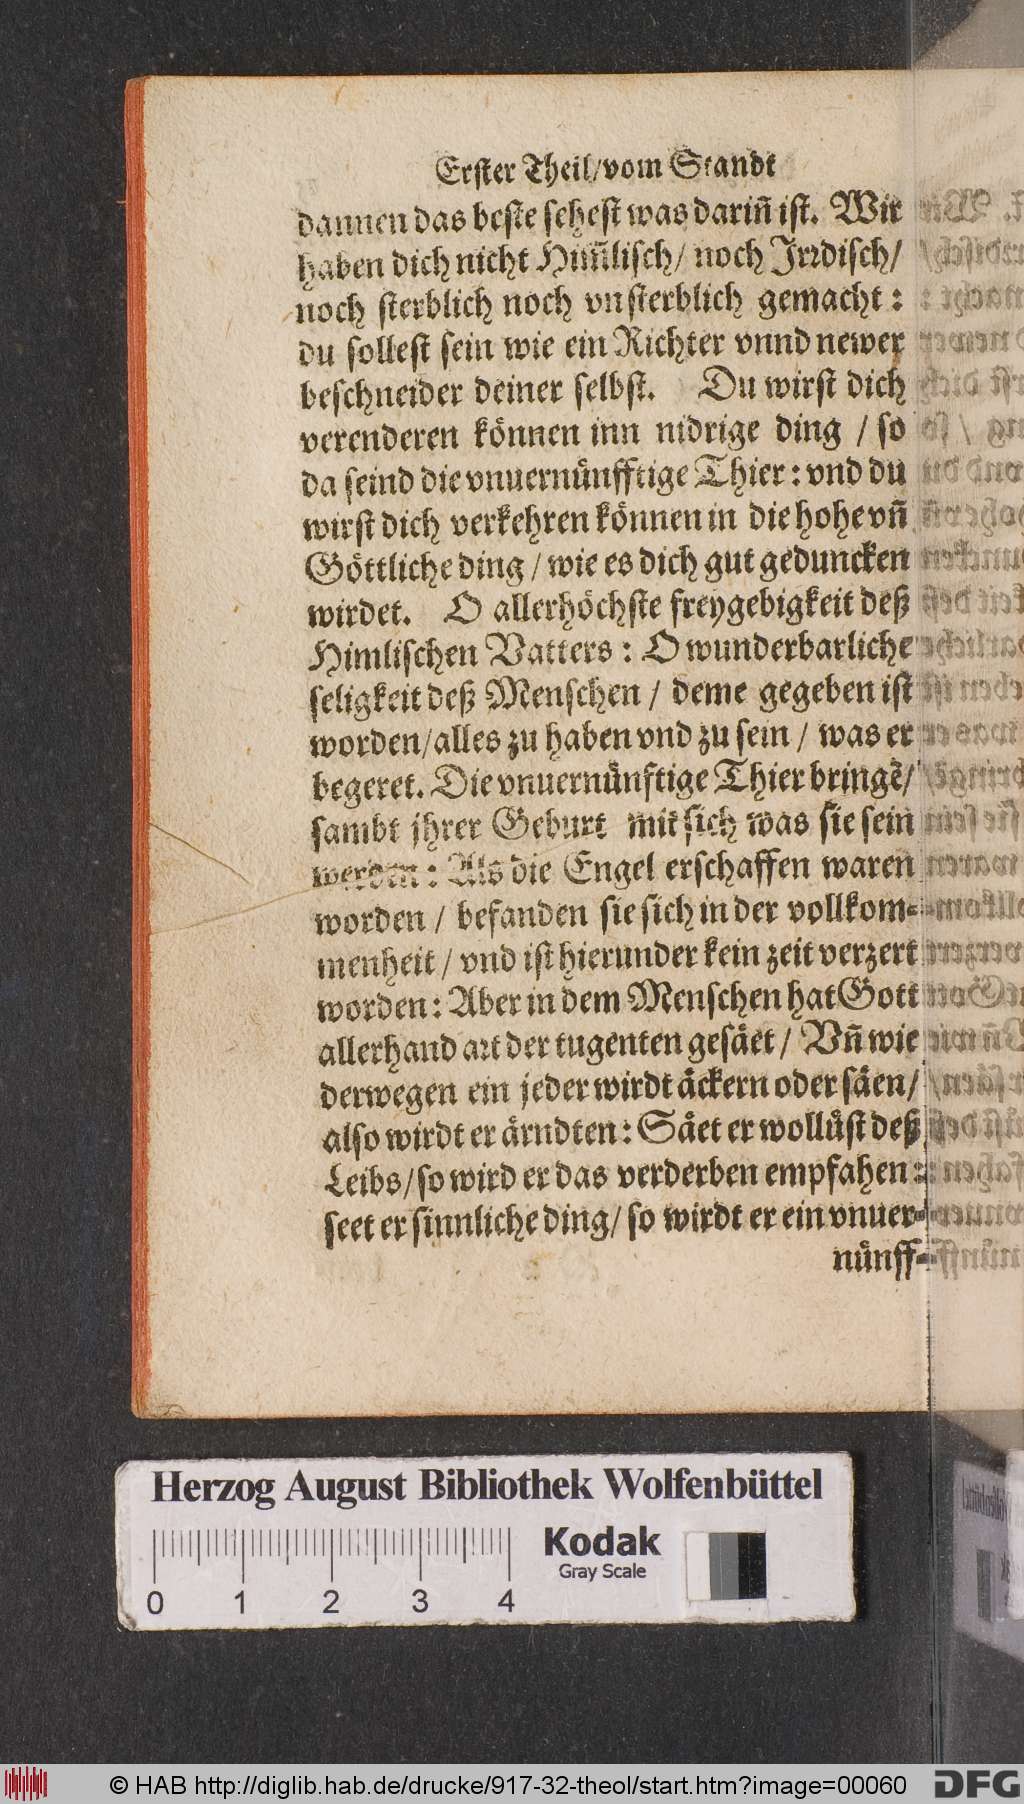 Erster Theil/vom Standt
dannen das beste sehest was dariñ ist. Wir
haben dich nicht Him̃lisch/ noch Jrꝛdisch/
noch sterblich noch vnsterblich gemacht:
du sollest sein wie ein Richter vnnd newer
beschneider deiner selbst. Du wirst dich
verenderen können inn nidrige ding / so
da seind die vnuernünfftige Thier: vnd du
wirst dich verkehren können in die hohe vñ
Göttliche ding / wie es dich gut geduncken
wirdet. O allerhöchste freygebigkeit deß
Himlischen Vatters: O wunderbarliche
seligkeit deß Menschen / deme gegeben ist
worden/alles zu haben vnd zu sein / was er
begeret. Die vnuernünftige Thier bringẽ/
sambt jhrer Geburt mit sich was sie sein
werden: Als die Engel erschaffen waren
worden / befanden sie sich in der vollkom-
menheit / vnd ist hierunder kein zeit verzert
worden: Aber in dem Menschen hat Gott
allerhand aꝛt der tugenten gesäet / Vñ wie
derwegen ein jeder wirdt äckern oder säen/
also wirdt er ärndten: Säet er wollüst deß
Leibs/so wird er das verderben empfahen:
seet er sinnliche ding/ so wirdt er ein vnuer-
nünff-
Herzog August Bibliothek Wolfenbüttel
Kodak
Gray Scale
0 1 2 3 4
© HAB http://diglib.hab.de/drucke/917-32-theol/start.htm?image=00060
DFG